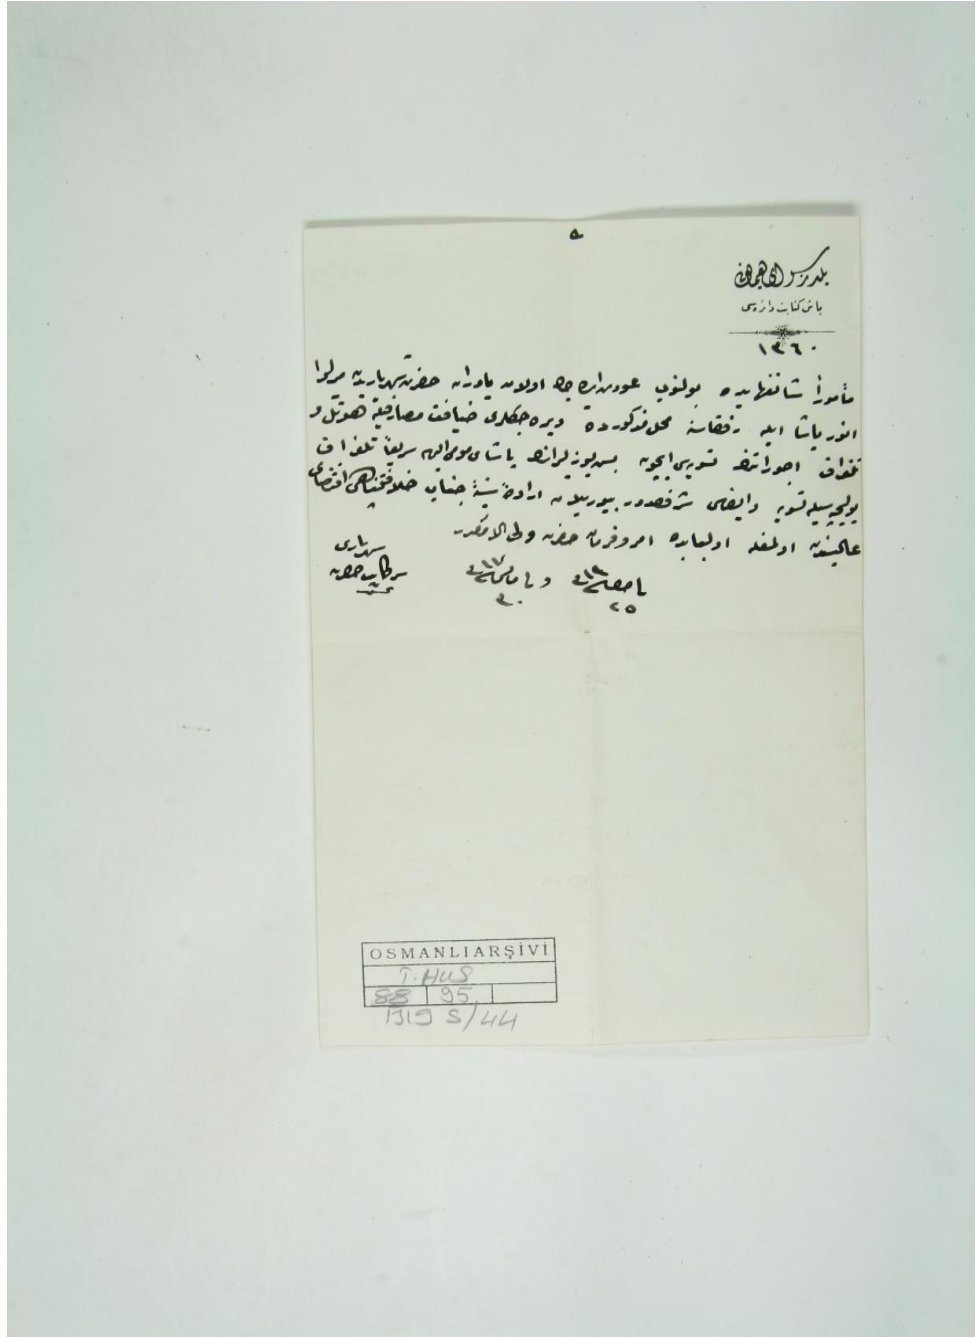 ه
يلديز سراى همايونى
باش كتابت دائره سى
١٣٦٠
مأموراً شانغهايده بولنوب عودت ايده جك اولان ياوران حضرت شهرياريدن ميرلوا
انور پاشا ايله رفقاسنه محل مذكورده ويره جكلرى ضيافت مصارفيله هوتل و
تلغراف اجوراتنك تسويه سى ايچون بشيوز ليرانك پاشاى مومى اليهه سريعاً تلغراف
پوليچه سيله تسويه وايفاسى شرفصدور بيوريلان اراده سنيه جناب خلافتپناهى اقتضاى
عاليسندن اولمغله اولبابده امر وفرمان حضرت ولى الامركدر
فى ٢٥ صفر سنه ١٩ و فى ٣٠ مايس سنه ١٧
سركاتب حضرت شهريارى
OSMANLI ARŞİVİ
Y..HUS
88 95
1319 S/44